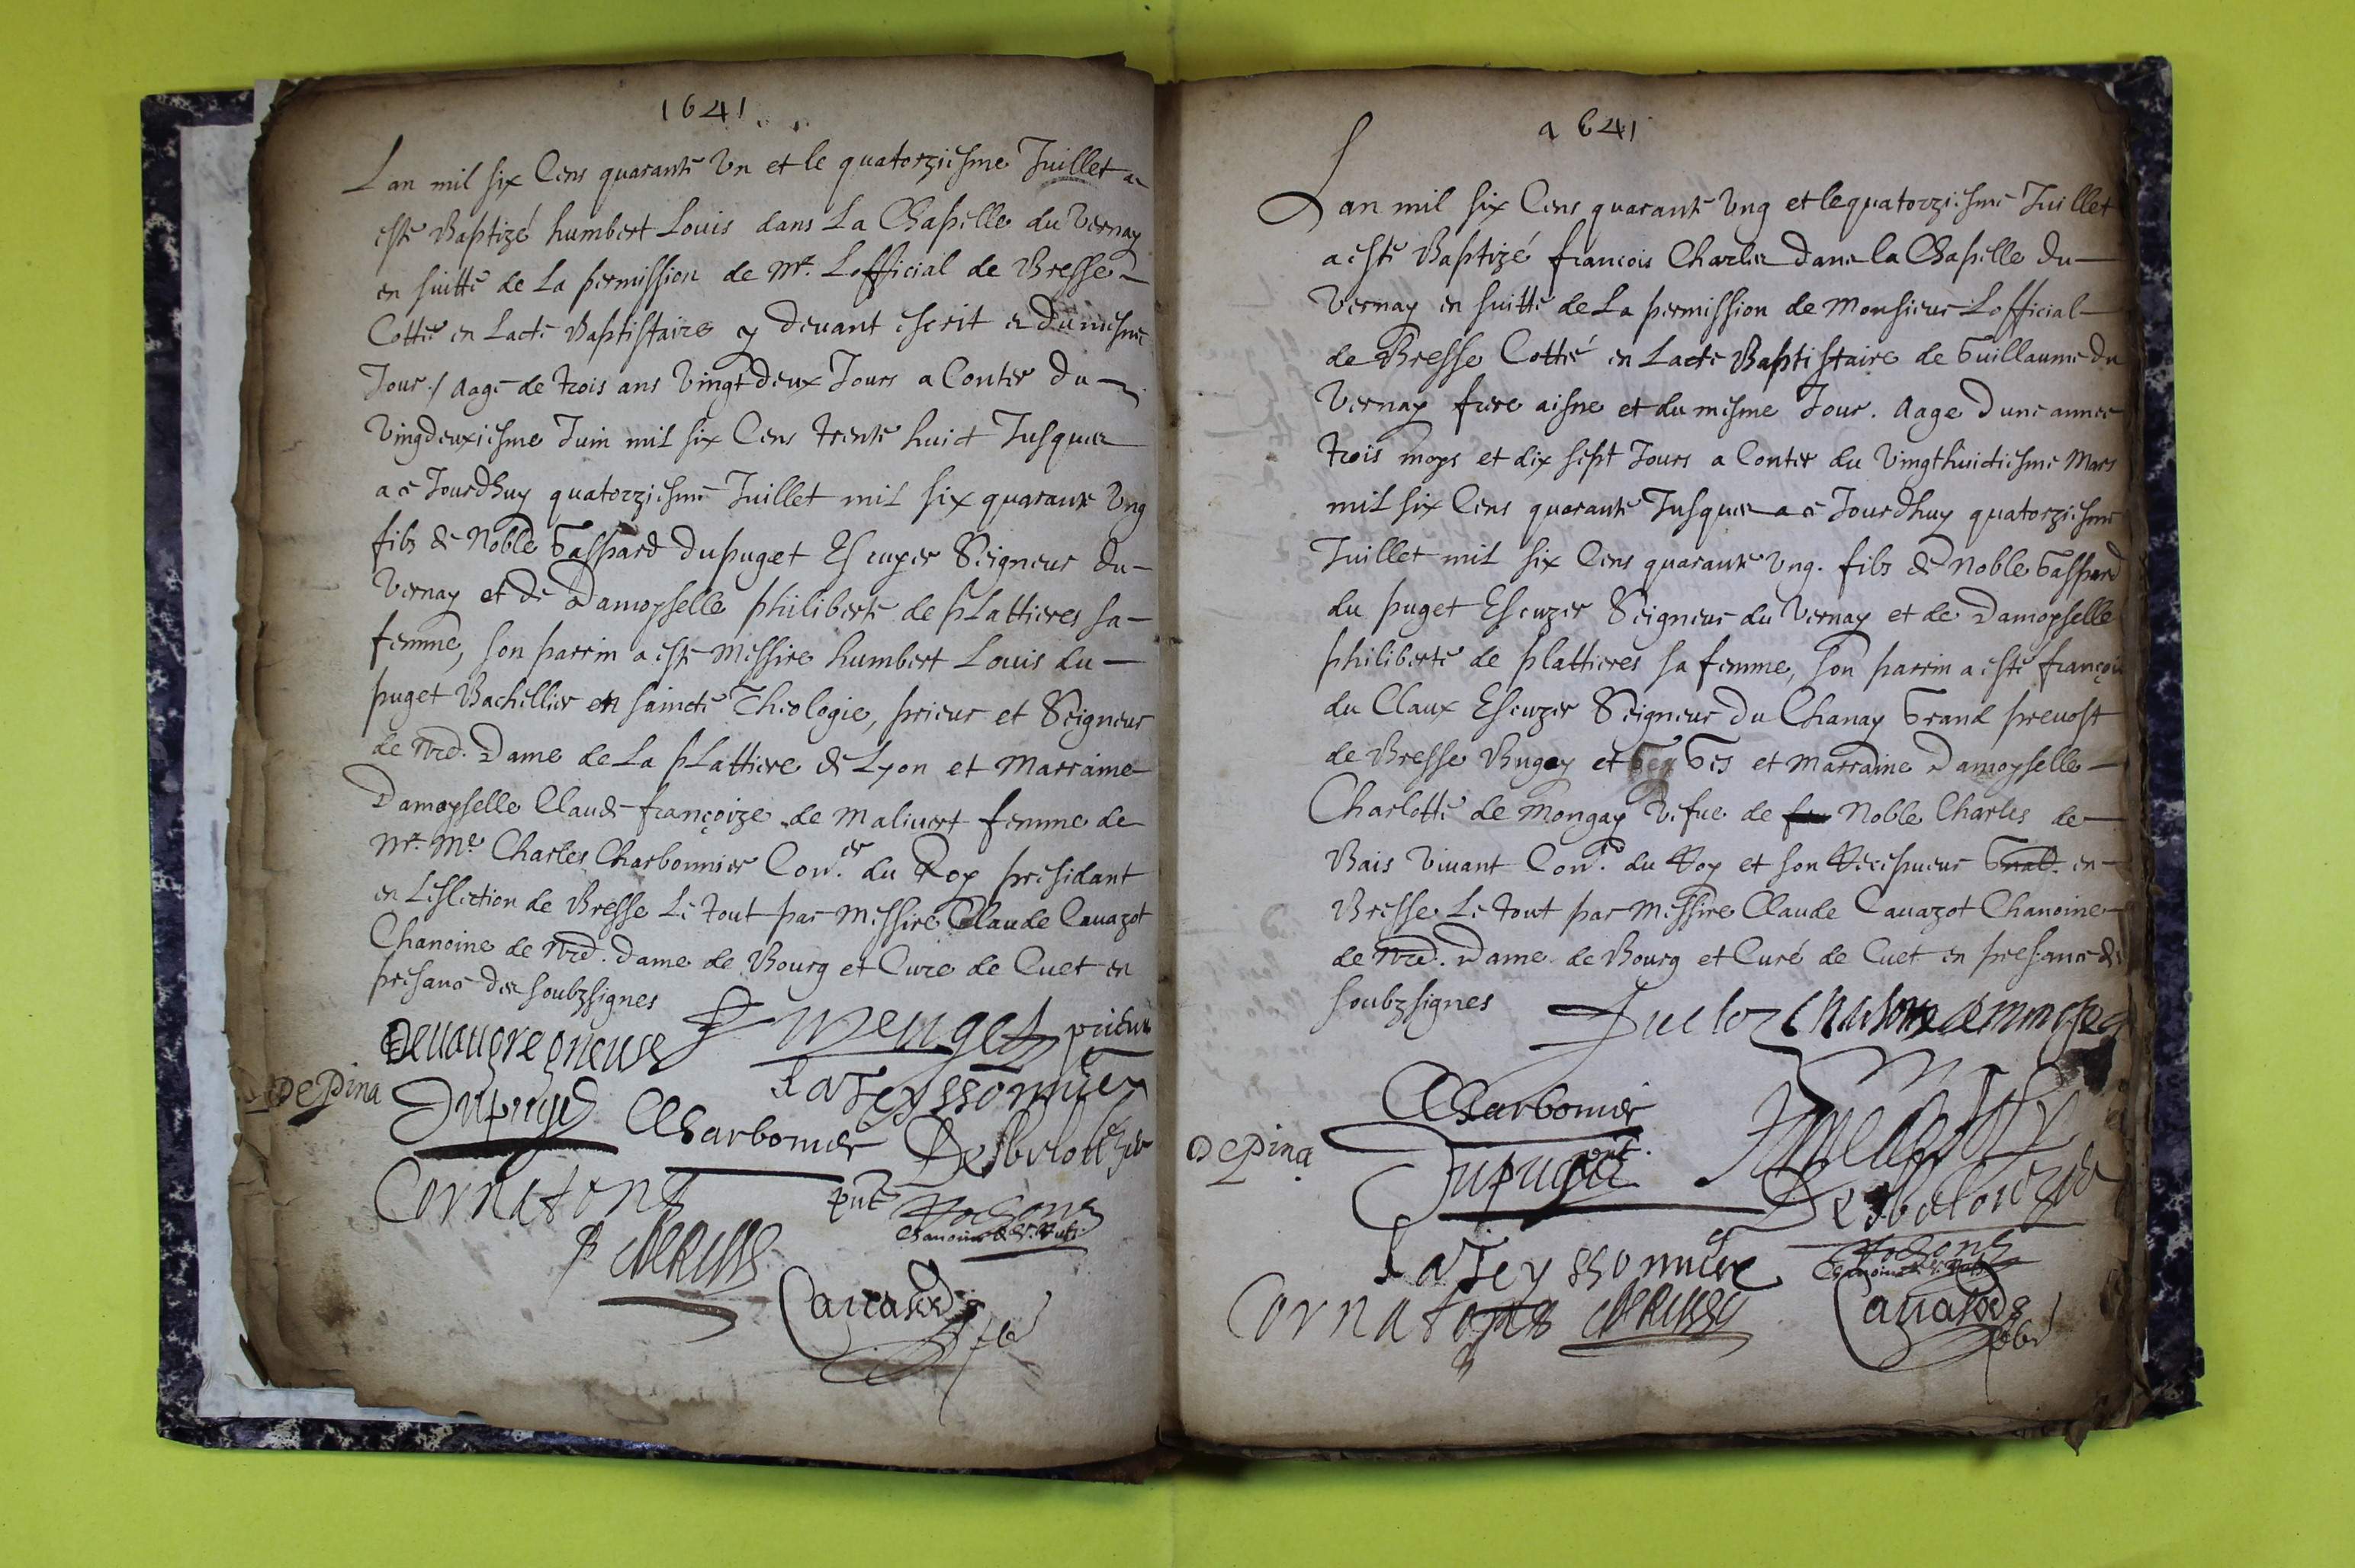 1641
Lan mil six Cens quarante Vn et le quatorziesme Juillet a
esté Baptizé humbert Louis dans La Chapelle du Vernay
en suitte de La permission de Mr. Lofficial de Bresse
Cottée en Lacte Baptistaire cy devant escrit et du mesme
Jour / Aagé de trois ans Vingt deux Jours a Conter du
Vingdeuxiesme Juin mil six Cens trente huict Jusques
a ce Jourdhuy quatorziesme Juillet mil six quarante Vng
filz de Noble Gaspard Dupuget Escuyer Seigneur du
Vernay et de Damoyselle philiberte de pLattieres sa
femme, son parrin a esté Messire humbert Louis du
puget Bachellier en saincte Theologie, prieur et Seigneur
de Nre. Dame de La pLattiere de Lyon et Marraine
Damoyselle Claude françoize de Malivert femme de
Mr. Me Charles Charbonnier Con.er du Roy presidant
en Leslection de Bresse Le tout par Messire Claude Cavazot
Chanoine de Nre. Dame de Bourg et Cure de Cuet en
presance des soubzsignes
prieur
Depina Dupuget Charbonier LaTeyssonniere
Cornatons
put
Chanoine
a 641
Lan mil six Cens quarante Vng et le quatorziesme Juillet
a esté Baptizé francois Charles Dans la Chapelle du
Vernay en suitte de La permission de Monsieur Lofficial
de Bresse Cotté en Lacte Baptistaire de Guillaume du
Vernay frere aisne et du mesme Jour. Aage dune annee
trois moys et dix sept Jours a Conter du Vingthuictiesme Mars
mil six Cens quarante Jusques a ce Jourdhuy quatorziesme
Juillet mil six Cens quarante Vng. filz de Noble Gaspard
du puget Escuyer Seigneur du Vernay et de Damoyselle
philiberte de plattieres sa femme, son parrin a esté françois
du Claux Escuyer Seigneur du Chanay Grand prevost
de Bresse Bugey et Gex Ges et Marraine Damoyselle
Charlotte de Mongay Vefue de feu Noble Charles de
Bais Vivant Con.er du Roy et son Recepveur Gnal. en
Bresse Le tout par Messire Claude Cavazot Chanoine
de Nre. Dame de Bourg et Curé de Cuet en presance des
soubzsignes
Charbonier
Depina Dupuget
LaTeyssonniere
Cornatons